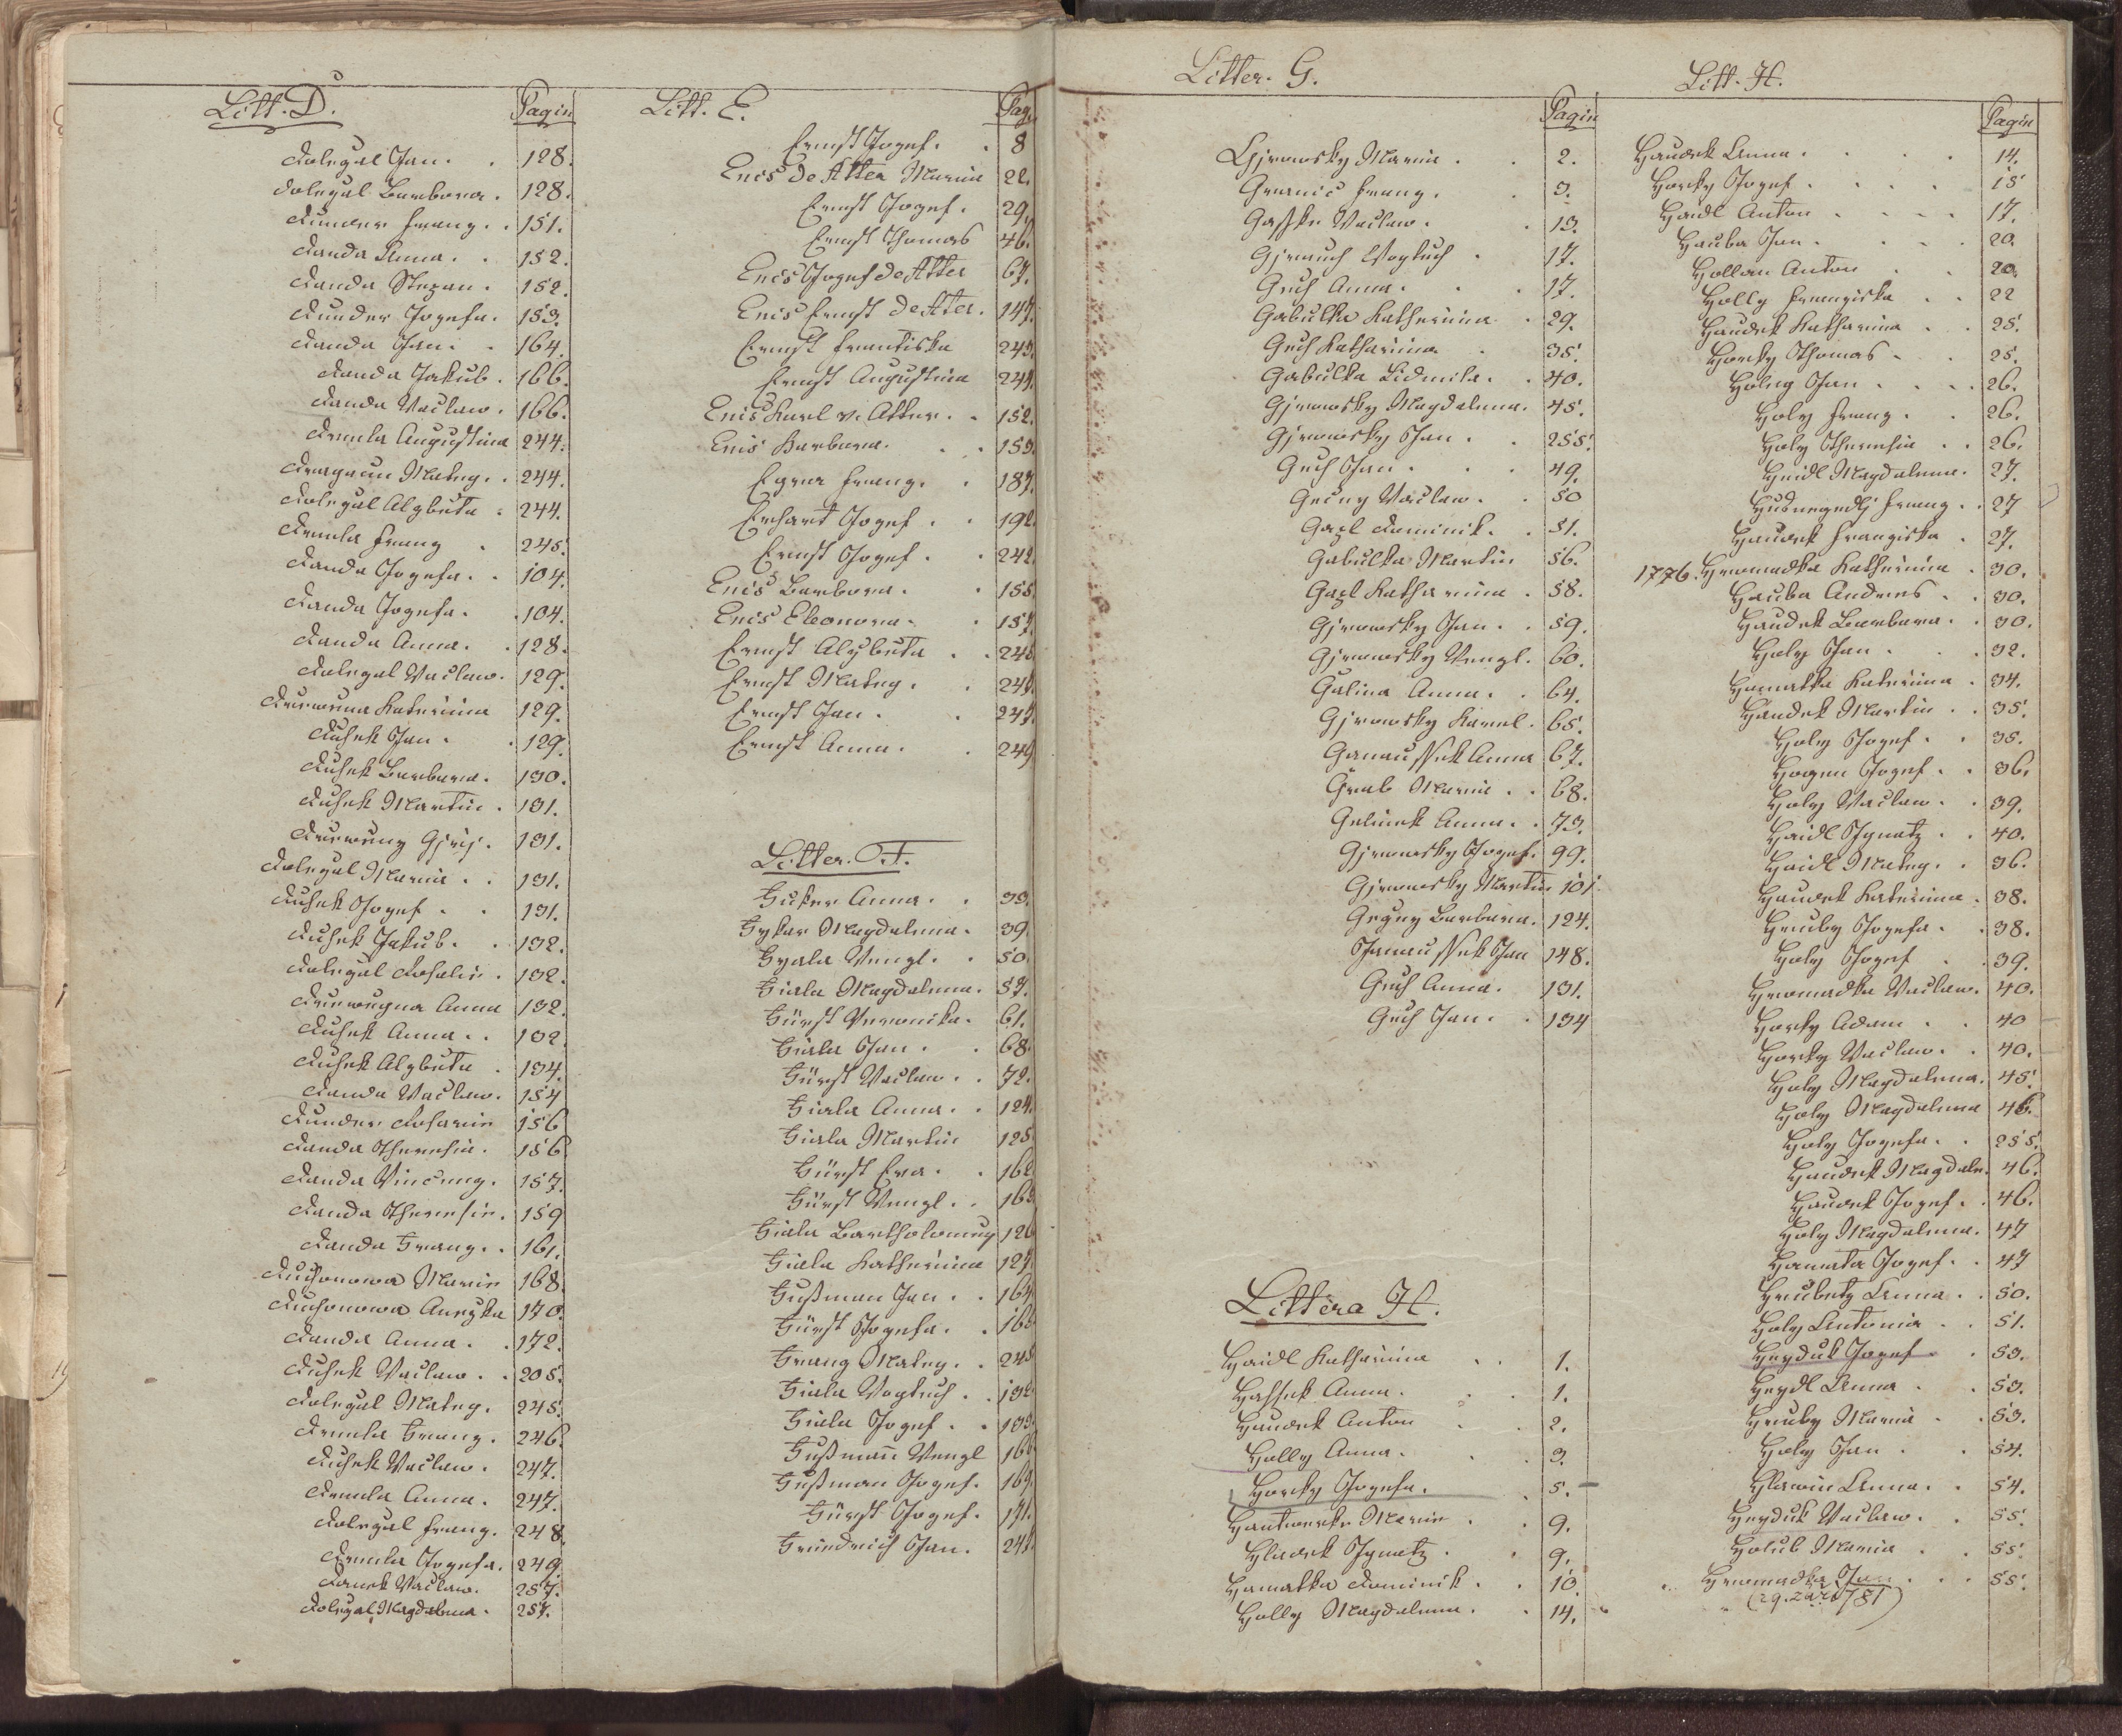 Litt. D.
Pagin
Dolegal Jan. . 128.
Dolegal Barbora. 128.
Dunder Franz. . 151.
Danda Anna. . 152.
Danda Stepan. 152.
Dunder Josefa. 153.
Danda Jan. . 164.
Danda Jakub. 166.
Danda Vaclaw. 166.
Dremla Augustina 244.
Matey. . 244.
Dolegal Alzbeta . 244.
Dremla Franz . 245.
Danda Jozefa. . 104.
Danda Jozefa. . 104.
Danda Anna. . 128.
Dolegal Vaclaw. 129.
Katerina 129.
Dusek Jan. . 129.
Dusek Barbara. 130.
Dusek Martin. 131.
131.
Dolegal Marie . . 131.
Dusek Jozef . . 131.
Dusek Jakub. . 132.
Dolegal Rosalie. 132.
Anna 132.
Dusek Anna. . 132.
Dusek Alzbeta . 134.
Danda Vaclaw. 154
Dunder Rosarie 156
Danda Theresia. 156
Danda Vincenz. 157.
Danda Theresie. 159
Danda Franz. . 161.
Duchonowa Marie 168.
Duchonowa Anezka 170.
Danda Anna. . 172.
Dusek Vaclaw. . 205.
Dolegal Matey. 245.
Dremla Franz. 246.
Dusek Vaclaw. 247.
Dremla Anna. 247.
Dolegal Franz. 248.
Dremla Jozefa. 249.
Danek Vaclaw. 257.
Dolegal Magdalena. 257.
Litt. E.
Pag.
Ernst Jozef. . 8
Enis De Atter Marie 22.
Ernst Jozef. 29.
Ernst Thomas 46.
Enis Jozef De Atter 67.
Enis Ernst De Atter. 147.
Ernst Frantiska 243.
Ernst Augustina 244.
Enis Karl v. Atter. . 152.
Enis Barbara. . . 153.
Franz. . 187.
Erhart Jozef. . 192.
Ernst Jozef. . 242.
Enis Barbora. . 155.
Enis Eleonora. . 157.
Ernst Alzbeta . . 246.
Ernst Matey. . 247.
Ernst Jan. . 247.
Ernst Anna. . 249
Litter. F.
Fuker Anna. . 33.
Fykar Magdalena. 39.
Fyala Venzl. . 50.
Fiala Magdalena. 57.
Fürst Veronika. 61.
Fiala Jan. . 68.
Fürst Vaclaw. . 72.
Fiala Anna. . 124.
Fiala Martin 125.
Fürst Eva. . 162.
Fürst Venzl. . 163.
Fiala Bartholomey 126
Fiala Katherina 127.
Fußman Jan. . 164
Fürst Jozefa. . 166
Franz Matey. . 245
Fiala Voytech. . 132.
Fiala Jozef. . 133.
Fußman̄ Venzl 166
Fußman Jozef. 169.
Fürst Jozef. 171.
Friedrich Jan. 247.
Litter. G.
Pagin
Gjrowsky Marie. . 2.
Franz. . 3.
Vaclaw. . 13.
Voytech . 17.
Guch Anna. . 17.
Gabulka Katherina . 29.
Guch Katharina. . 35.
Gabulka Lidmila. . 40.
Gjrowsky Magdalena. 45.
Gjrowsky Jan. . 255.
Guch Jan. . . 49.
Vaclaw. . 50
Gazl Dominik. . 51.
Gabulka Martin 56.
Gazl Katharina . 58.
Gjrowsky Jan. . 59.
Gjrowsky Venzl. 60.
Galina Anna. . 64.
Gjrowsky Karel. 65.
Anna 67.
Grab Marie. . 68.
Gelinek Anna. . 73.
Gjrowsky Jozef. 99.
Gjrowsky Martin 101.
Barbara. 124.
Jan 148.
Guch Anna. 131.
Guch Jan. . 134
Littera H.
Haidl Katharina . . 1.
Hassek Anna. . . 1.
Haudek Anton . 2.
Holly Anna. . 3.
Horky Jozefa. . 5.
Hantwerke Marie . . 9.
Hladek Ignatz . . 9.
Hamatka Dominik. . 10.
Holly Magdalena. . 14.
Litt. H.
Pagin
Haudek Anna. . . . 14.
Horky Jozef. . . . 15
Haidl Anton . . . . 17.
Hauba Jan. . . . 20.
Hollan Anton . . 20.
Holly Franziska . . 22
Haudek Katharina . . 25.
Horky Thomas . . 25.
Jan. . . . 26.
Holy Franz. . 26.
Holy Theresia . . 26.
Haidl Magdalena. 27.
Franz. . 27
Haudek Franziska . 27.
1776. Hromadka Katherina . 30.
Hauba Andres . . 30.
Haudek Barbara. . 30.
Holy Jan . . . 32.
Hamatka Katerina . 34.
Haudek Martin . . 35.
Holy Jozef. . 35.
Jozef. . 36.
Holy Vaclaw. . 39.
Haidl Ignatz . . 40.
Haidl Matey. . 36.
Haudek Katerina . 38.
Hruby Jozefa. . 38.
Holy Jozef . . 39.
Hromadka Vaclaw. 40.
Horky Adam . . 40
Horky Vaclaw. . 40.
Holy Magdalena. 45.
Holy Magdalena 46.
Holy Jozefa. . 255.
Haudek Magdale. 46.
Haudek Jozef. . 46.
Holy Magdalena. 47
Hamata Jozef. . 47
Hrubetz Anna. . 50.
Holy Antonia . . 51.
Heyduk Jozef. . 53.
Heydl Anna . . 53.
Hruby Maria . . 53.
Holy Jan . . 54.
Anna. . 54.
Heyduk Vaclaw. . 55.
Holub Maria . . 55.
Hromadka Jan . . . 55.
(29. 1781)